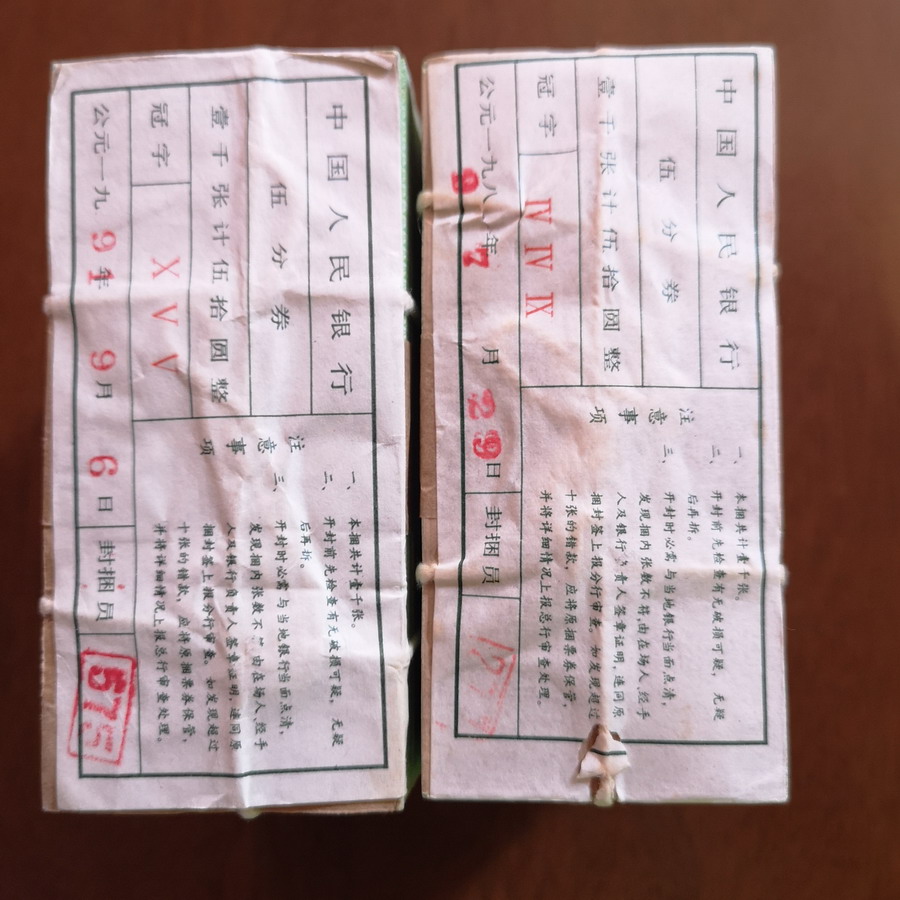 中国人民银行
伍分券
壹千张计伍拾圆整
冠字 X V V
公元一九91年9月6日 封捆员
注意事项
一、本捆共计壹千张。
二、开封前先检查有无破损可疑，无疑
后再拆。
三、开封时必需与当地银行当面点清，
发现捆内张数不符，由在场人、经手
人及银行负责人签章证明，连同原
捆封签上报分行审查。如发现超过
十张的错款，应将原捆票券保管，
并将详细情况上报总行审查处理。
中国人民银行
伍分券
壹千张计伍拾圆整
冠字 IV IV IX
公元一九八年7月29日 封捆员
注意事项
一、本捆共计壹千张。
二、开封前先检查有无破损可疑，无疑
后再拆。
三、开封时必需与当地银行当面点清，
发现捆内张数不符，由在场人、经手
人及银行负责人签章证明，连同原
捆封签上报分行审查。如发现超过
十张的错款，应将原捆票券保管，
并将详细情况上报总行审查处理。